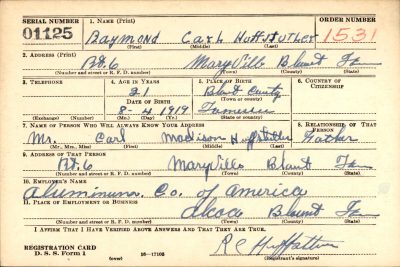 SERIAL NUMBER 1. NAME (Print) ORDER NUMBER
01125 Raymond Carl Huffstutler 1531
(First) (Middle) (Last)
2. ADDRESS (Print)
Rt. 6 Maryville Blount Tn
(Number and street or R. F. D. number) (Town) (County) (State)
3. TELEPHONE 4. AGE IN YEARS 5. PLACE OF BIRTH 6. COUNTRY OF CITIZENSHIP
21 Blount County
DATE OF BIRTH (Town or county)
8-4 1919 Tennessee
(Exchange) (Number) (Mo.) (Day) (Yr.) (State or country)
7. NAME OF PERSON WHO WILL ALWAYS KNOW YOUR ADDRESS 8. RELATIONSHIP OF THAT PERSON
Mr. Carl Madison Huffstutler Father
(Mr., Mrs., Miss) (First) (Middle) (Last)
9. ADDRESS OF THAT PERSON
Rt. 6 Maryville Blount Tn
(Number and street or R. F. D. number) (Town) (County) (State)
10. EMPLOYER'S NAME
Aluminum Co. of America
11. PLACE OF EMPLOYMENT OR BUSINESS
Alcoa Blount Tn
(Number and street or R. F. D. number) (Town) (County) (State)
I AFFIRM THAT I HAVE VERIFIED ABOVE ANSWERS AND THAT THEY ARE TRUE.
REGISTRATION CARD
D. S. S. Form 1 (over) 16-17105 (Registrant's signature)